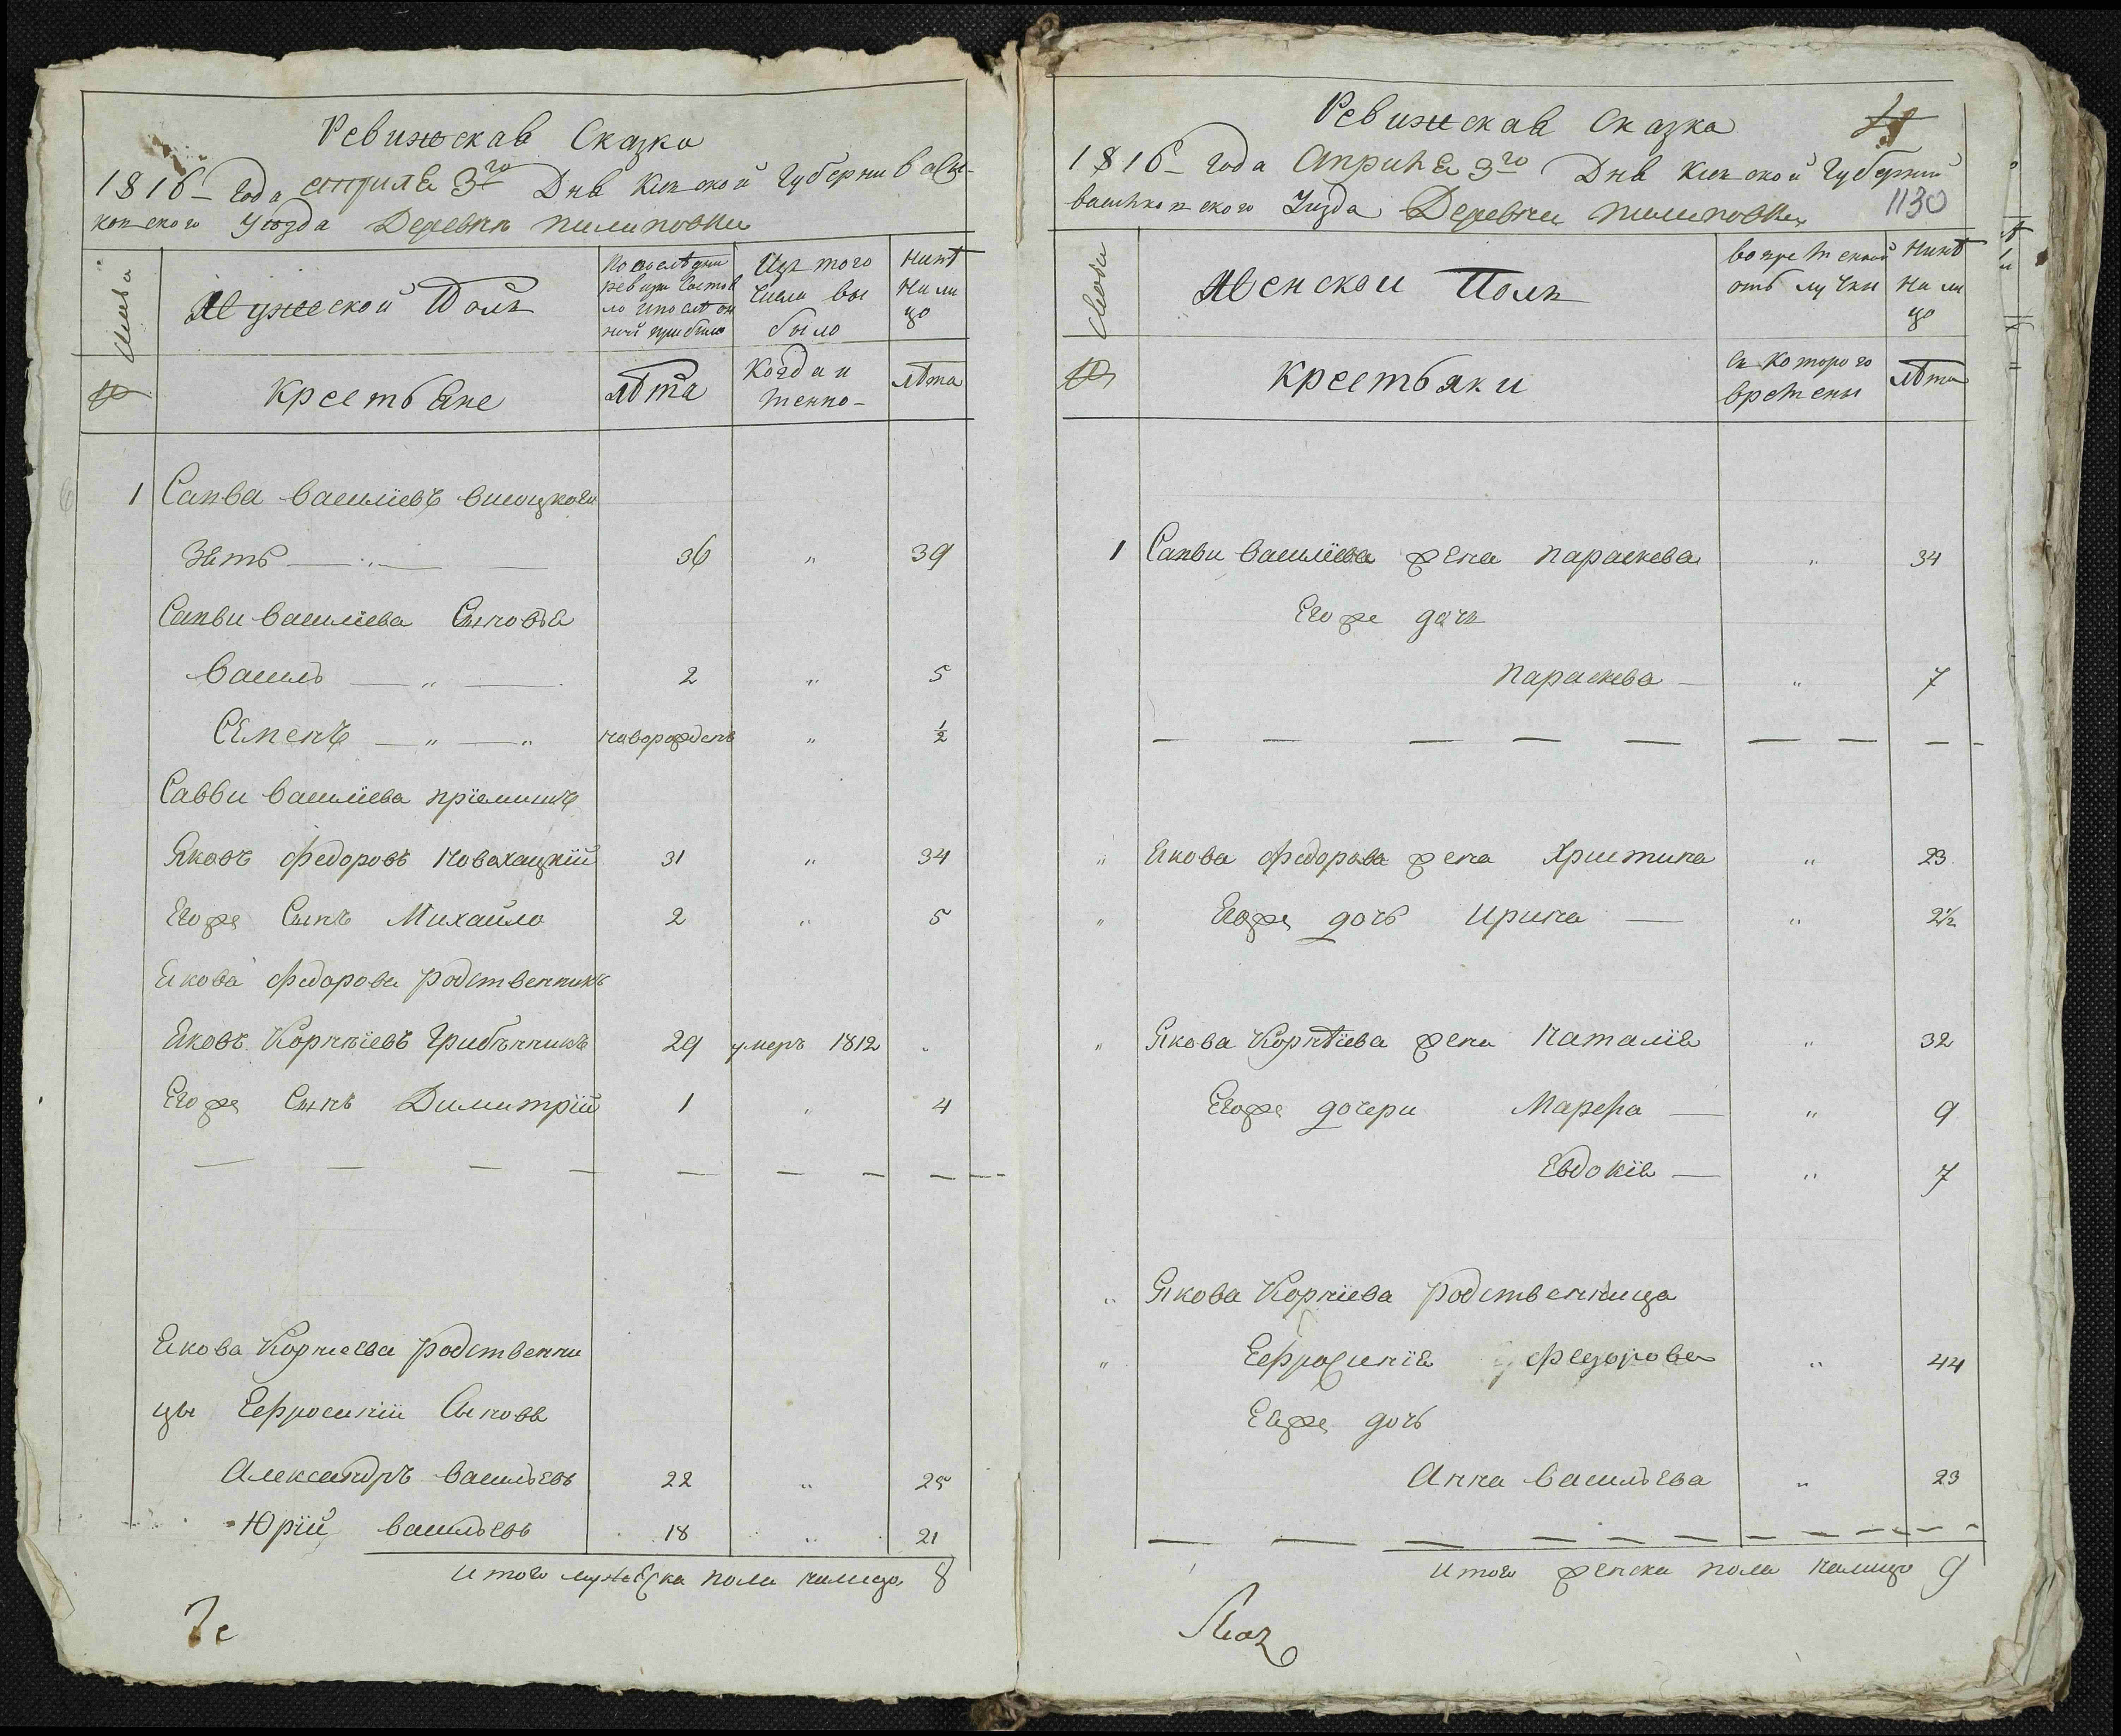 Ревижская Сказка
1816 года апреля 3го Дня Киевской Губернии Василь-
ковского Уезда Деревни Пилиповки
Семья
Мужеской Полъ
По последней
ревизии состоя
ло и после он
ной прибыло
Изъ того
числа вы
было
Ныне
на ли
цо
№
Крестьяне
лета
Когда и
менно
лета
1 Савва Василіевъ
Зять — 36 " 39
Савви Василіева Сыновья
Василь — " — 2 " 5
Семенъ — " — " новорожденъ " ½
Савви Василіева пріемишъ
Яковъ Федоровъ Новохацкій 31 " 34
Егоже Сынъ Михайло 2 " 5
Якова Федорова родственникъ
Яковъ Корнѣевъ Грибѣнникъ 29 умеръ 1812 "
Егоже Сынъ Димитрій 1 " 4
Якова Корнеева родственни
цы Ефросиніи Сыновя
Александръ Васильевъ 22 " 25
Юрій Васильевъ 18 " 21
Итого мужеска пола налицо 8
Ревижская Сказка
4
1816 года Апреля 3го Дня Киевской Губерний
Васильковского Уезда Деревни Пилиповки
1130
Семья
Женской Полъ
во временной
отъ лучки
Ныне
на ли
цо
№
Крестьянки
съ которого
времены
лета
1 Савви Василіева жена Параскева " 34
Егоже дочъ
Параскева — " 7
" Якова Федорова жена Христина " 23
" Егоже дочь Ирина — " 2½
" Якова Корнѣіева жена Наталія " 32
Егоже дочери Марфа — " 9
Евдокія — " 7
" Якова Корніева родственница
" Ефросинія Федорова " 44
Ееже дочь
Анна Васильева " 23
Итого женска пола налицо 9